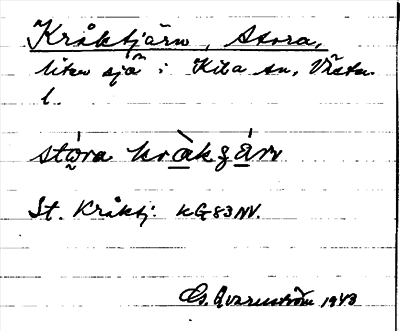 Kråktjärn, Stora,
liten sjö i Kila sn, Västm.
l.
stòra kràkʒárn
St. Kråktj. KG83NV.
Qvarnström 1943